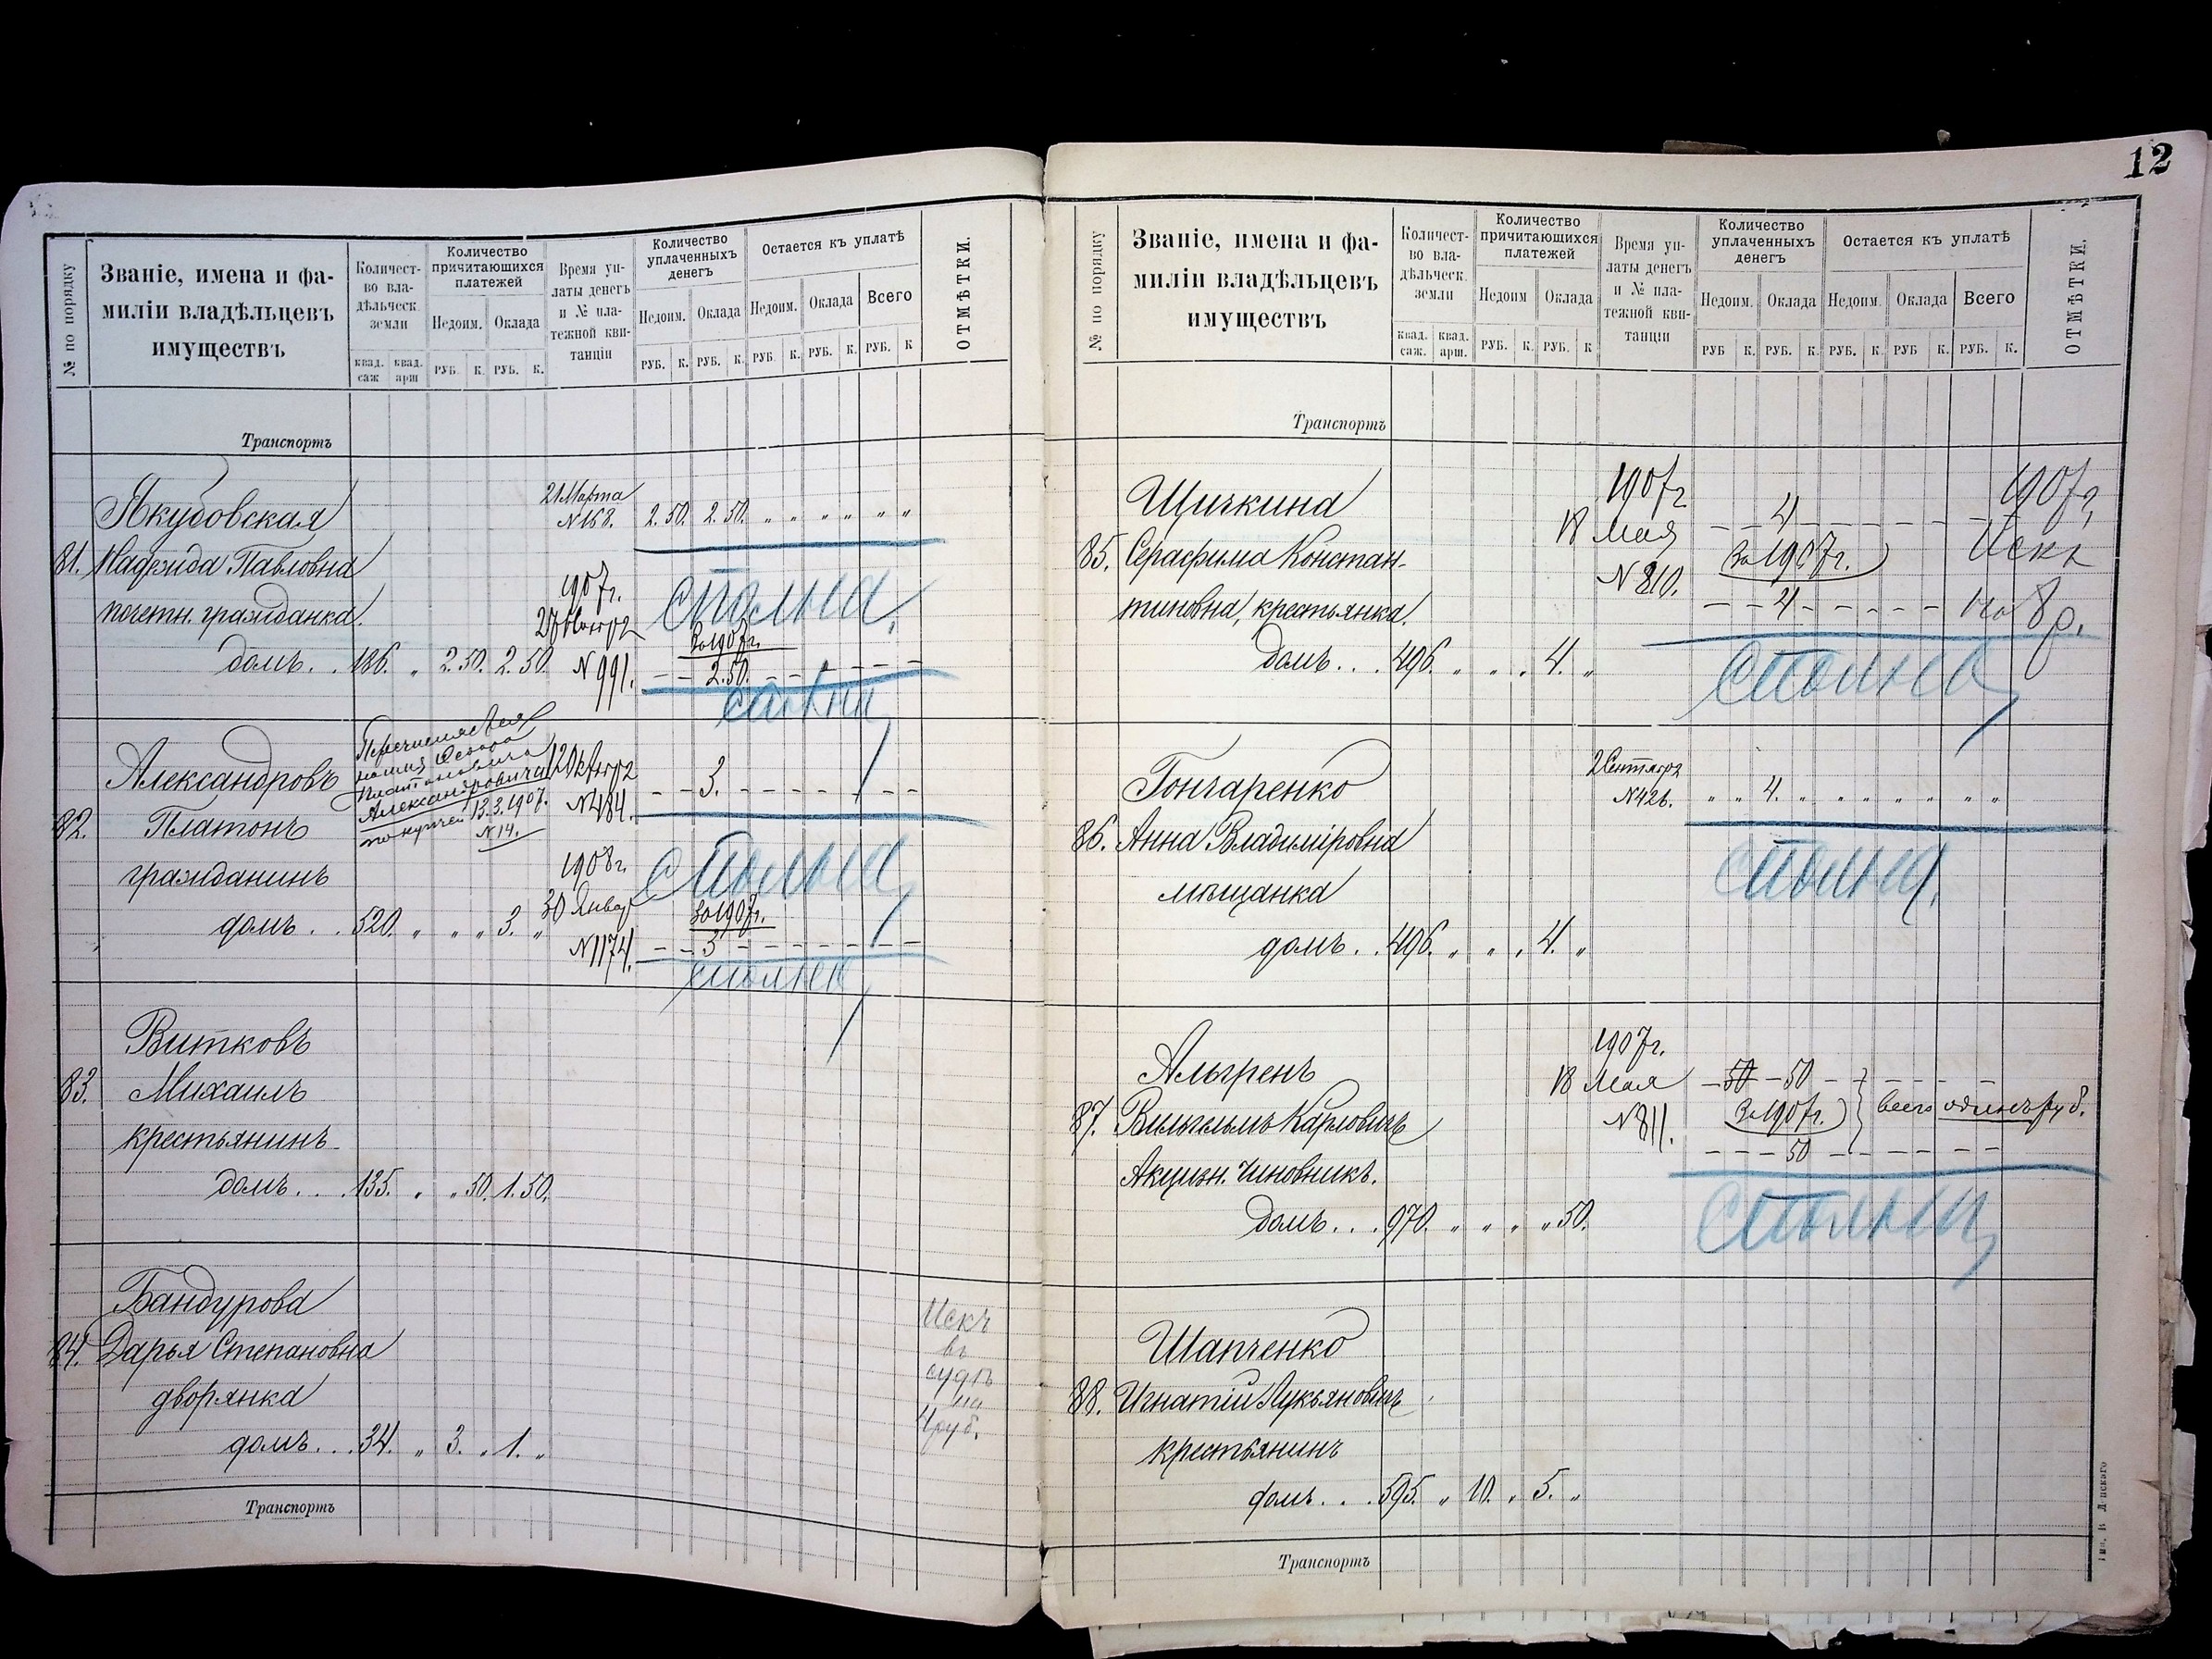 № по порядку
Званіе, имена и фа-
миліи владѣльцевъ
имуществъ
Количест-
во вла-
дѣльческ.
земли
квад. саж
квад. арш
Количество
причитающихся
платежей
Недоим.
Оклада
РУБ. К. РУБ. К.
Время уп-
латы денегъ
и № пла-
тежной кви-
танціи
Количество
уплаченныхъ
денегъ
Недоим.
Оклада
РУБ. К. РУБ. К.
Остается къ уплатѣ
Недоим.
Оклада
Всего
РУБ. К. РУБ. К. РУБ. К
ОТМѢТКИ.
Транспортъ
Якубовская
81. Надежда Павловна
почетн. гражданка.
домъ . . 186. „ 2.50. 2.50.
21 Марта
№ 168. 2.50. 2.50. „ „ „ „ „ „
сполна.
1907г.
№ 991.
За 1907г.
— — 2.50. — —
Александровъ
82. Платонъ
гражданинъ
домъ . . 520. „ „ „ 3. „
Платоновича
Александровича
по купчей 13.3.1907.
№ 14.
12 Октября
№ 484. — — 3. — — — — — —
сполна
1908г.
30 Январ
№ 1174.
За 1907г.
— — 3 — — — — — —
сполна
Витковъ
83. Михаилъ
крестьянинъ
домъ . . . 135. „ „ 50. 1.50.
Бандурова
84. Дарья Степановна
дворянка
домъ . . . 34. „ 3. „ 1. „
Искъ
въ
судѣ
на
4 руб.
Транспортъ
12
№ по порядку
Званіе, имена и фа-
миліи владѣльцевъ
имуществъ
Количест-
во вла-
дѣльческ.
земли
квад. саж.
квад. арш.
Количество
причитающихся
платежей
Недоим
Оклада
РУБ. К. РУБ. К
Время уп-
латы денегъ
и № пла-
тежной кви-
танціи
Количество
уплаченныхъ
денегъ
Недоим.
Оклада
РУБ К. РУБ. К.
Остается къ уплатѣ
Недоим.
Оклада
Всего
РУБ. К. РУБ К. РУБ. К.
ОТМѢТКИ.
Транспортъ
Щичкина
85. Серафима Констан-
тиновна, крестьянка.
домъ . . . 496. „ „ „ 4. „
1907г
18 Мая
№ 810.
— — 4 — — — — — —
За 1907г.
— — 4 — — — — — —
сполна
1907г,
Искъ
на 8 р.
Гончаренко
86. Анна Владиміровна
мѣщанка
домъ . . 496. „ „ „ 4. „
2 Сентября
№ 426. „ „ 4. „ „ „ „ „ „ „
сполна.
Альгренъ
87. Вильгельмъ Карловичъ
Акцизн. чиновникъ.
домъ . . . 970. „ „ „ „ 50.
1907г.
18 Мая
№ 811.
— 50 — 50 — — — — — —
За 1907г.
всего одинъ руб.
— — — 50 — — — — — —
сполна
Шапченко
88. Игнатій Лукьяновичъ
крестьянинъ
домъ . . . 595. „ 10. „ 5. „
Транспортъ